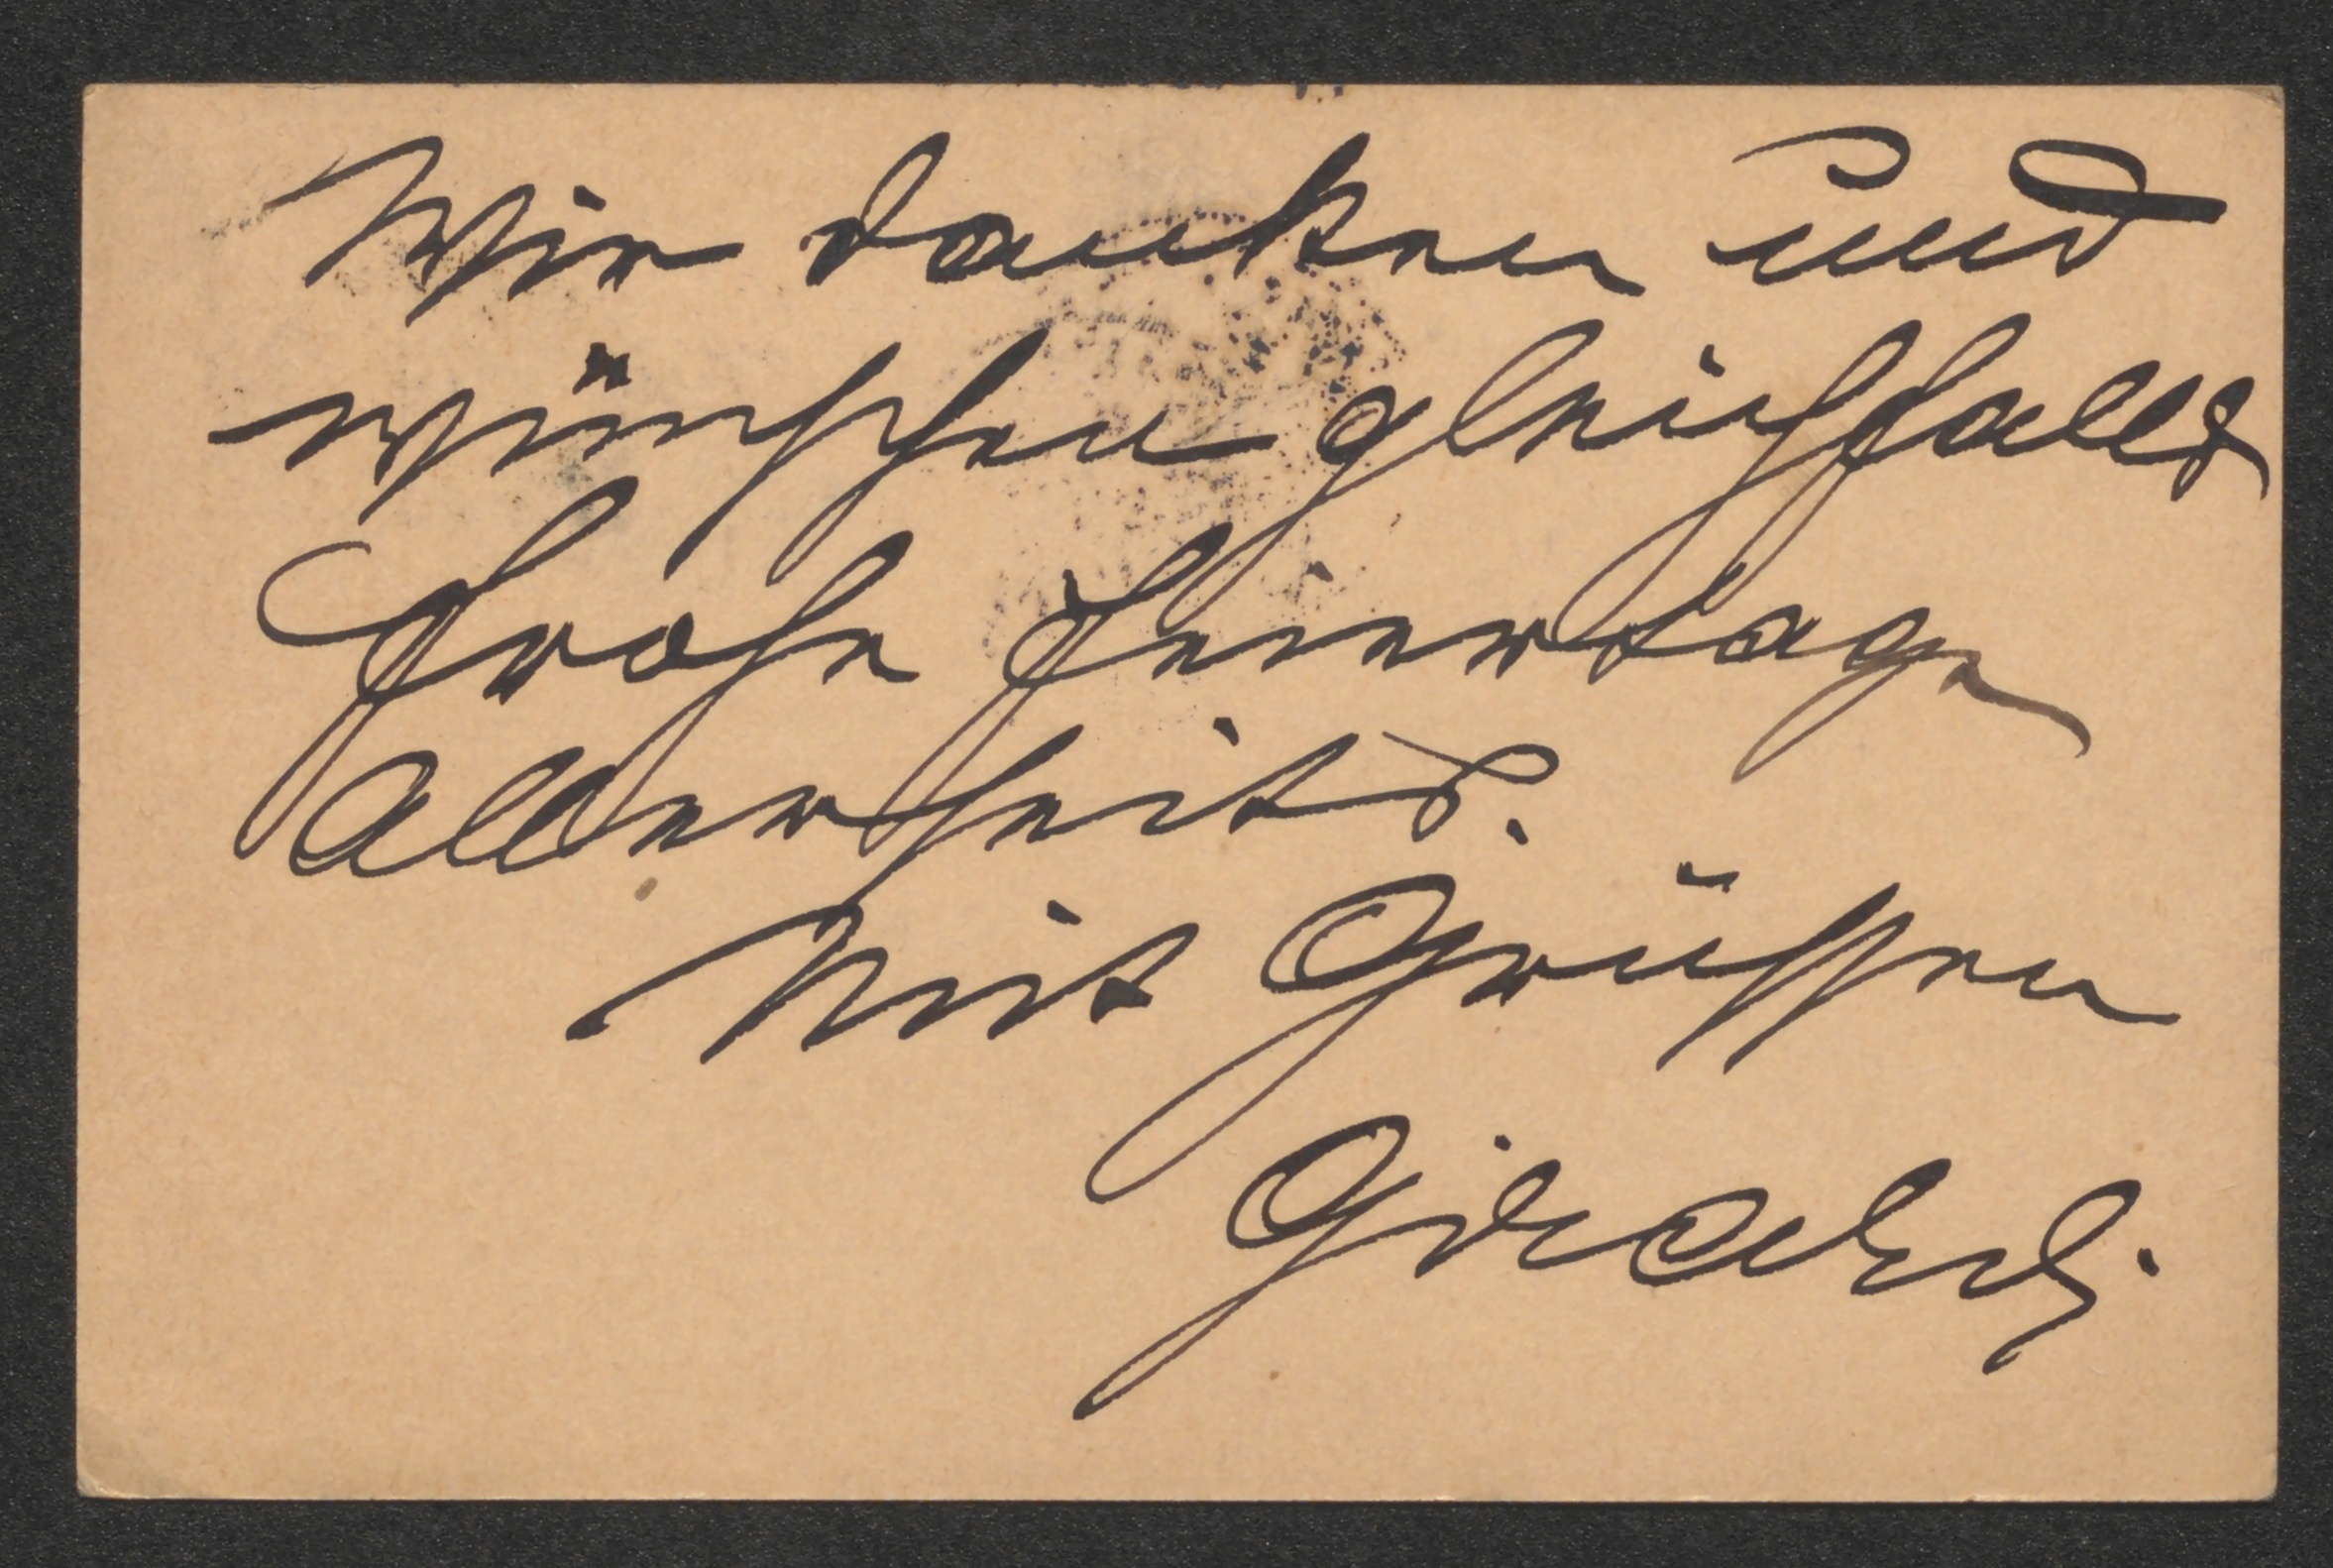 Wir danken und
wünschen gleichfalls
frohe Feiertage
allerseits.
Mit Grüssen